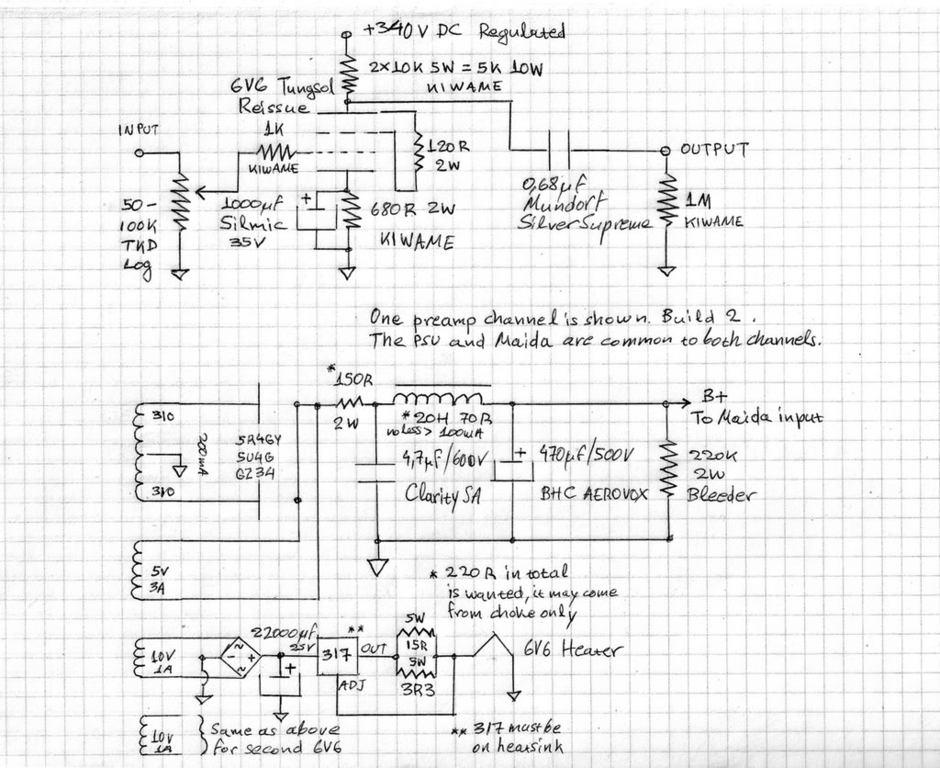 +340V DC Regulated
2×10K 5W = 5K 10W
KIWAME
6V6 Tungsol
Reissue
INPUT
1K
KIWAME
120R
2W
OUTPUT
50-
100K
TKD
Log
1000µF
Silmic
35V
+
680R 2W
KIWAME
0,68µF
Mundorf
SilverSupreme
1M
KIWAME
One preamp channel is shown. Build 2.
The PSU and Maida are common to both channels.
*150R
2W
* 20H 70R
no less > 100mA
B+
To Maida input
310
310
200mA
5R4GY
5U4G
GZ34
4,7µF/600V
Clarity SA
+
470µF/500V
BHC AEROVOX
220K
2W
Bleeder
5V
3A
* 220R in total
is wanted, it may come
from choke only
10V
1A
~
- +
~
22000µF
25V
+
**
317
OUT
ADJ
5W
15R
5W
3R3
6V6 Heater
10V
1A
Same as above
for second 6V6
** 317 must be
on heatsink